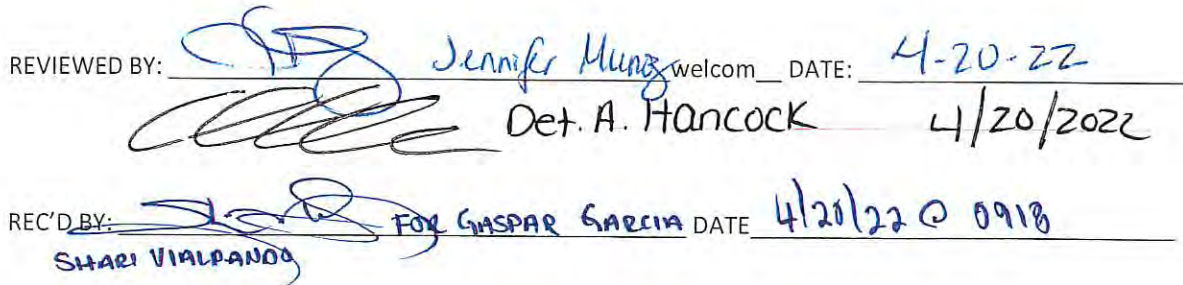 REVIEWED BY: Jennifer Munoz welcom__ DATE: 4-20-22
Det. A. Hancock 4/20/2022
REC'D BY: FOR GASPAR GARCIA DATE 4/20/22 @ 0918
SHARI VIALPANDO